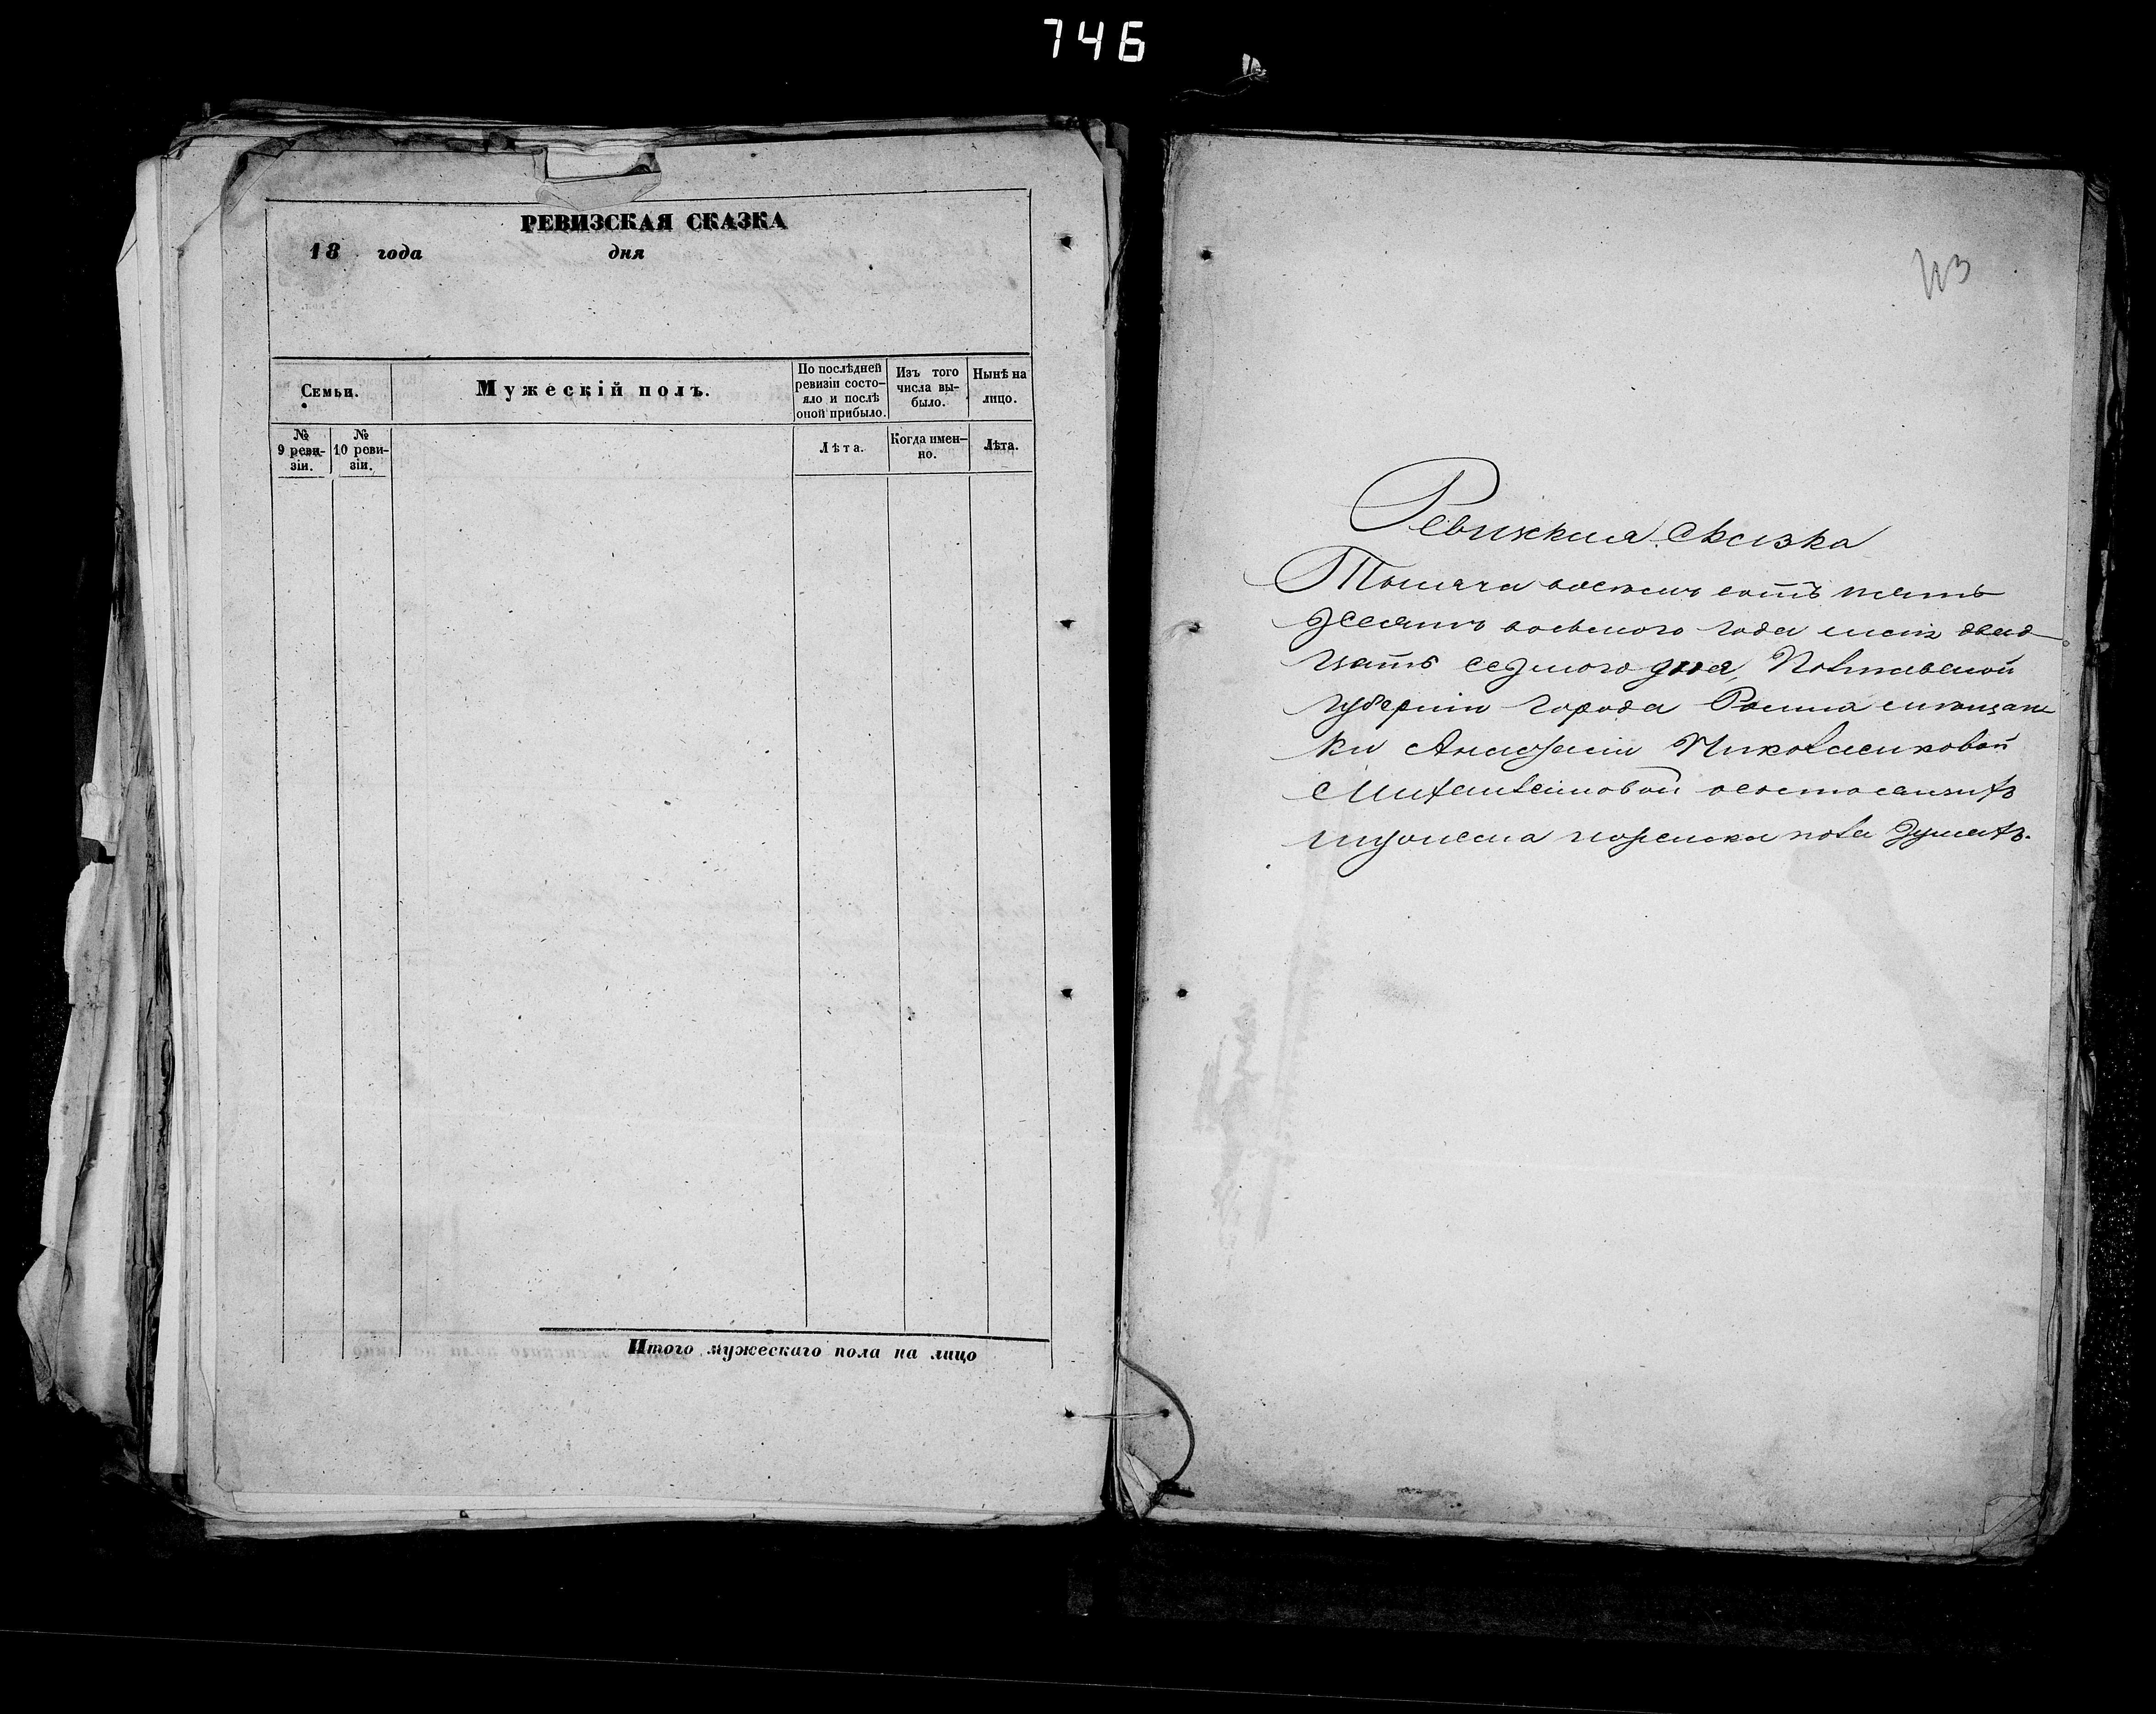 746
РЕВИЗСКАЯ СКАЗКА
18 года дня
Семьи.
Мужескій полъ.
По послѣдней ревизіи состо-
яло и послѣ оной прибыло.
Изъ того числа вы-
было.
Нынѣ на лицо.
№ 9 реви-
зіи.
№ 10 реви-
зіи.
Лѣта.
Когда имен-
но.
Лѣта.
Итого мужескаго пола на лицо
Сказка
Тысяча восемь сотъ пять
десятъ восьмого года двад
цать седмого дня, Полтавской
губерніи города Ромна
ки
мужеска женска пола душахъ.